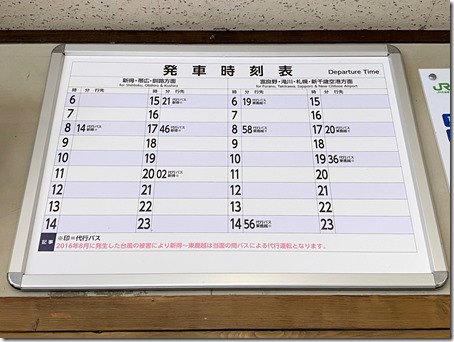 発車時刻表 Departure Time
新得・帯広・釧路方面
for Shintoku, Obihiro & Kushiro
富良野・滝川・札幌・新千歳空港方面
for Furano, Takikawa, Sapporo & New Chitose Airport
時 分 行先 時 分 行先 時 分 行先 時 分 行先
6 15 21 代行バス 新得※ 6 19 代行バス 東鹿越※ 15
7 16 7 16
8 14 代行バス 新得※ 17 46 代行バス 新得※ 8 58 代行バス 東鹿越※ 17 20 代行バス 東鹿越※
9 18 9 18
10 19 10 19 36 代行バス 東鹿越※
11 20 02 代行バス 新得※ 11 20
12 21 12 21
13 22 13 22
14 23 14 56 代行バス 東鹿越※ 23
記事
※印=代行バス
2016年8月に発生した台風の被害により新得～東鹿越は当面の間バスによる代行運転となります。
JR